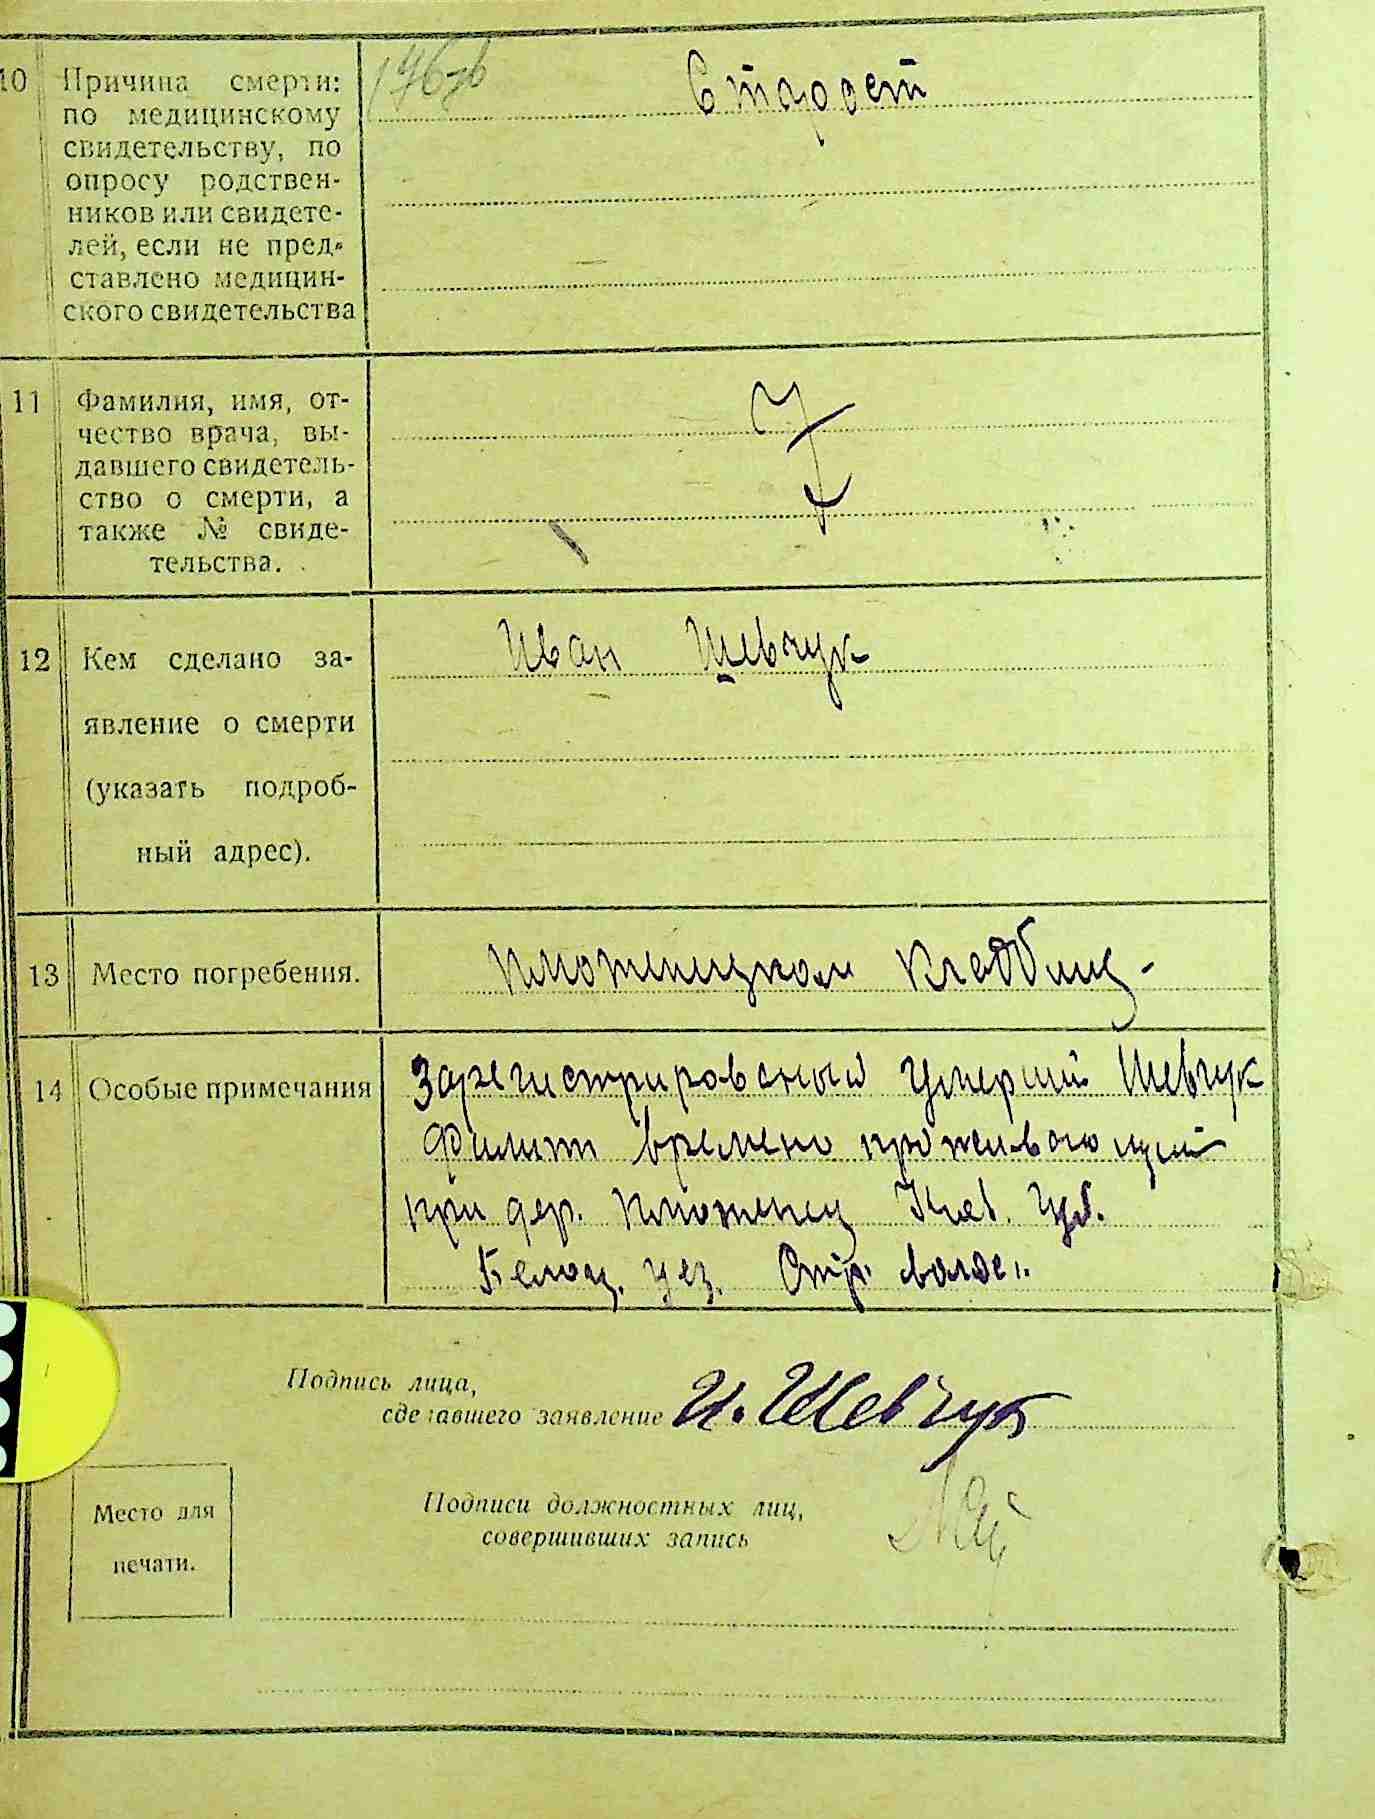 10 Причина смерти:
по медицинскому
свидетельству, по
опросу родствен-
ников или свидете-
лей, если не пред-
ставлено медицин-
ского свидетельства
Старост
11 Фамилия, имя, от-
чество врача, вы-
давшего свидетель-
ство о смерти, а
также № свиде-
тельства.
12 Кем сделано за-
явление о смерти
(указать подроб-
ный адрес).
Иван Шевчук
13 Место погребения.
14 Особые примечания
Зарегистрированый умерший Шевчук
Филип времено проживающий
при дер. Киев. губ.
Белоц. уез.
Подпись лица,
сделавшего заявление И. Шевчук
Место для
печати.
Подписи должностных лиц,
совершивших запись